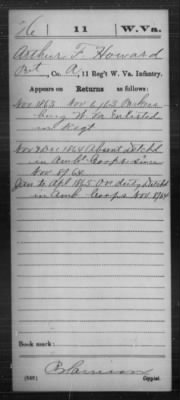 H | 11 | W. Va.
Arthur F. Howard
Pvt, Co. A, 11 Reg't W. Va. Infantry.
Appears on Returns as follows:
Nov 1863 Nov 6/63 Parkers
burg W Va Enlisted
in Regt
Nov & Dec 1864 Absent Detchd
in Ambl Corps since
Nov 8/64
Jan to Apl 1865 On duty Detchd
in Amb. Corps Nov 8/64
Book mark:
Copyist.